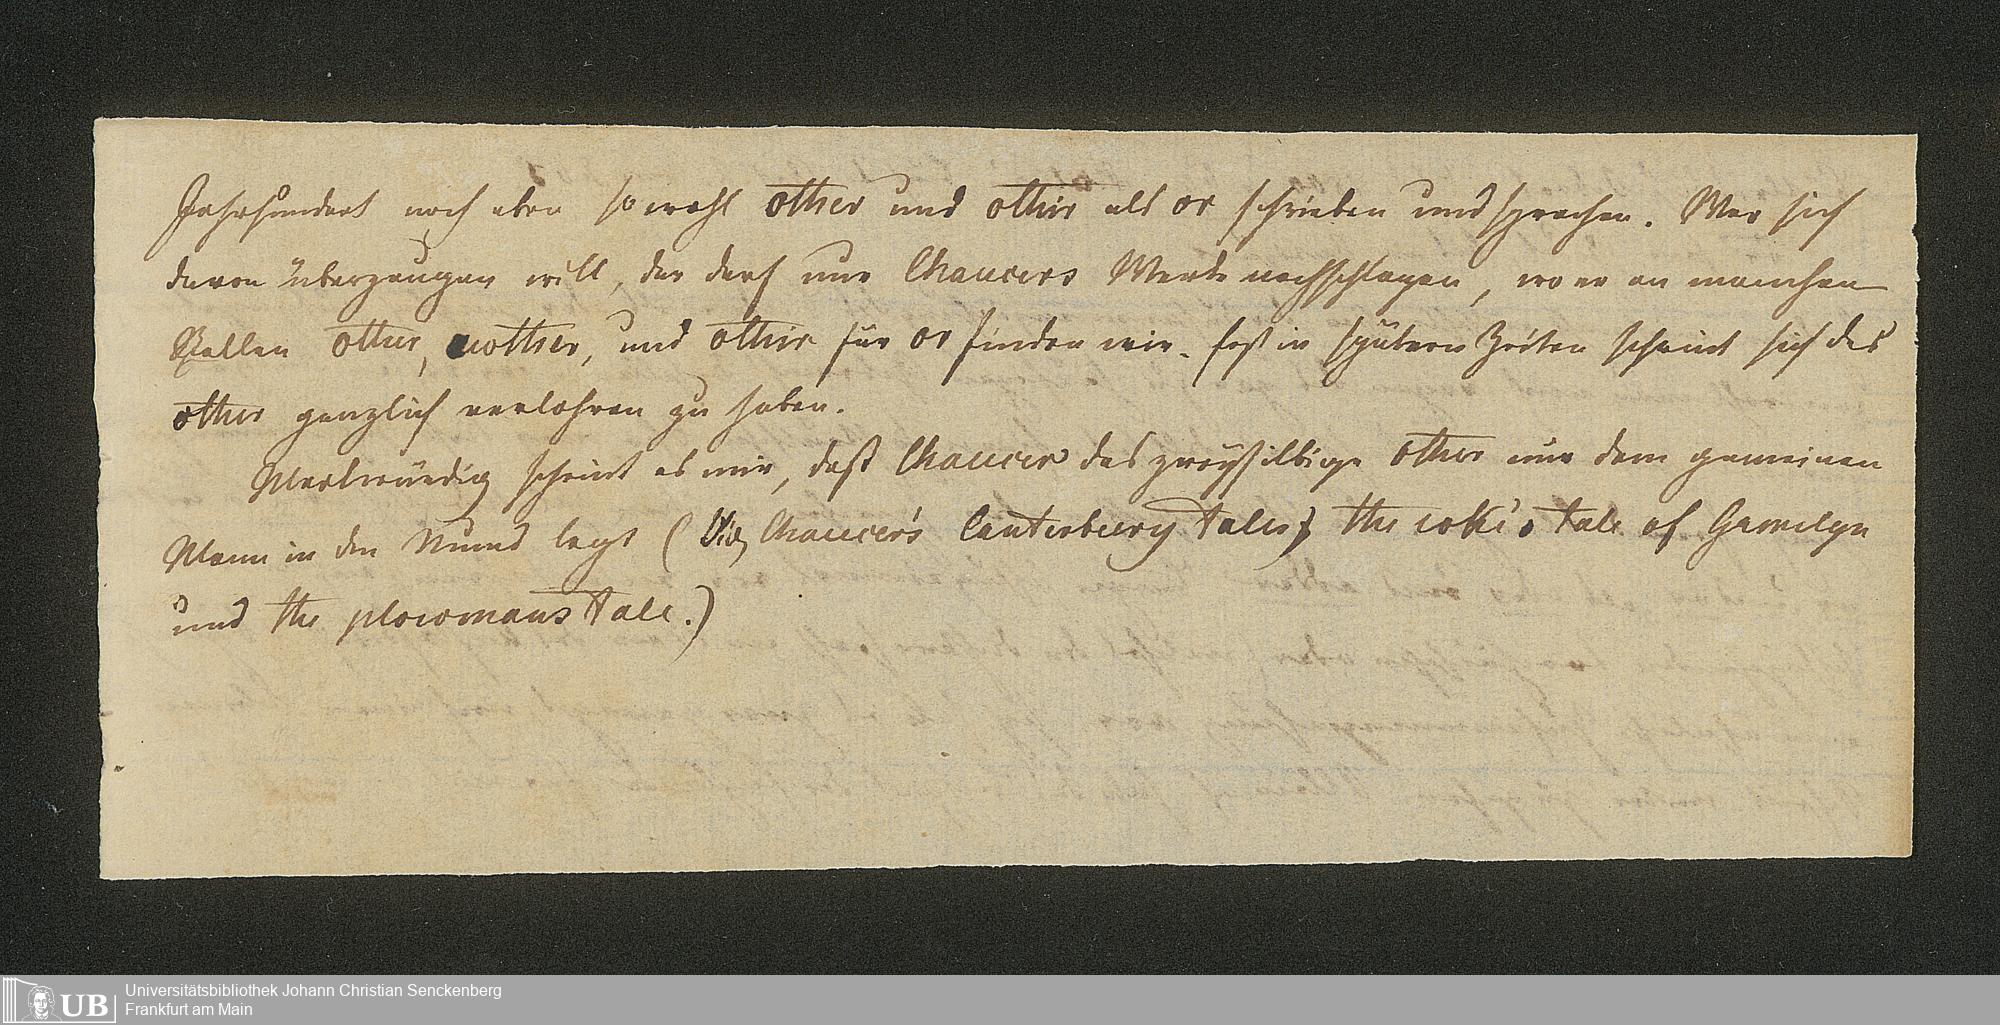 Jahrhundert noch eben so wohl other und othir als or schrieben und sprachen. Wer sich
davon überzeugen will, der darf nur Chaucers Werke nachschlagen, wo er an manchen
Stellen other, nother, und othir für or finden wir. Erst in spätern Zeiten scheint sich das
other gänzlich verlohren zu haben.
Merkwürdig scheint es mir, daß Chaucer das zweysilbige other nur dem gemeinen
Mann in den Mund legt (Vid, Chaucer's Canterbury tales, the coke's tale of Gamelyn
und the plowmans tale.)
UB
Universitätsbibliothek Johann Christian Senckenberg
Frankfurt am Main